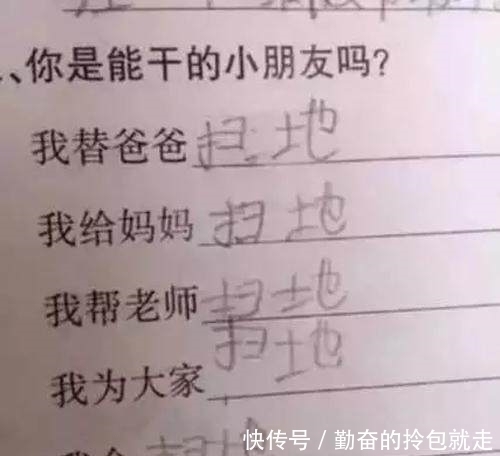 、你是能干的小朋友吗?
我替爸爸扫地
我给妈妈扫地
我帮老师扫地
我为大家扫地
扫地
快传号/勤奋的拎包就走